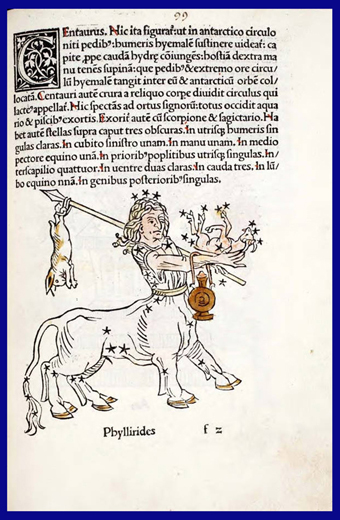 99
CEntaurus. Hic ita figurat̄: ut in antarctico circulo
niti pedibꝰ: humeris hyemalē sustinere uideat̄: ca
pite, ppe caudā hydrę cōiungēs: hostiā dextra ma
nu tenēs supinā: que pedibꝰ & extremo ore circu/
lū hyemalē tangit inter eū & antarcticū orbē col/
locatā. Centauri autē crura a reliquo corpe diuidit circulus qui
lacteꝰ appellat̄. Hic spectās ad ortus signorū: totus occidit aqua
rio & piscibꝰ exortis. Exorit̄ autē cū scorpione & sagictario. Ha
bet autē stellas supra caput tres obscuras. In utrisq; humeris sin
gulas claras. In cubito sinistro unam. In manu unam. In medio
pectore equino unā. In prioribꝰ poplitibus utrisq; singulas. In/
terscapilio quattuor. In uentre duas claras: In cauda tres. In lū/
bo equino unā. In genibus posterioribꝰ singulas.
Phyllirides f 2